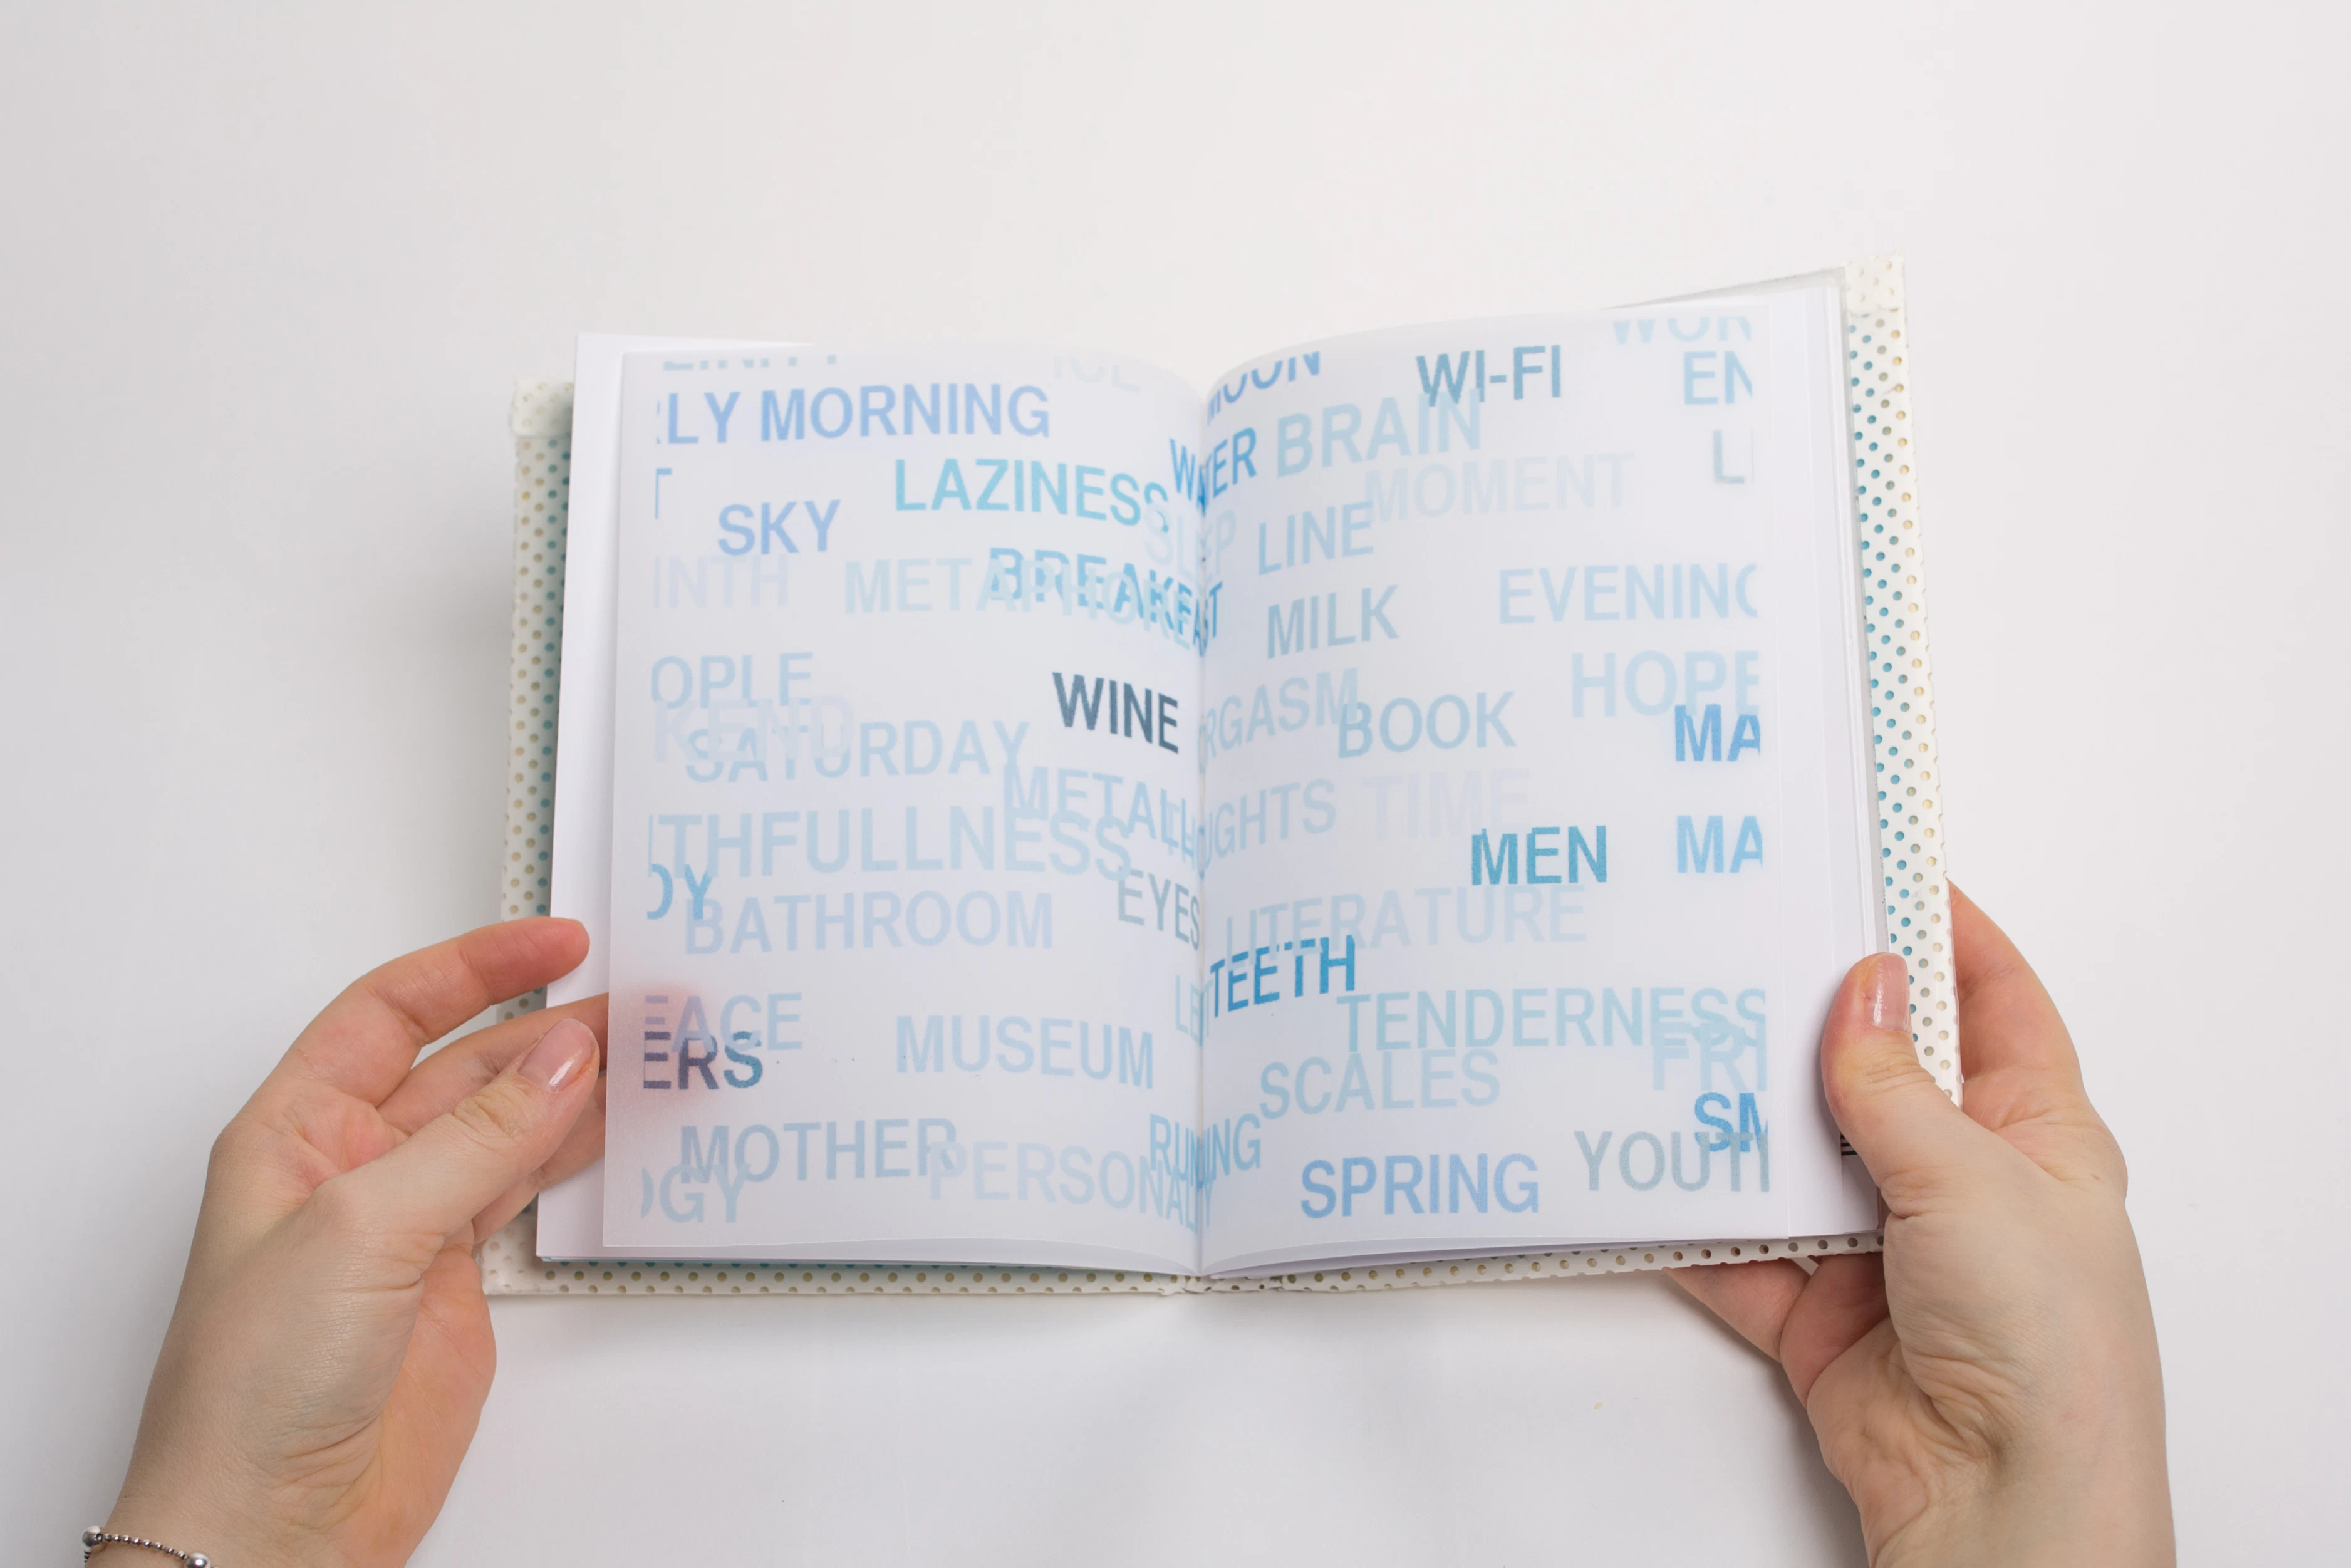 ICE
LY MORNING
LAZINESS
SKY
SLEEP
INTH
METAPHORE
BREAKFAST
OPLE
KEND
SATURDAY
WINE
METALL
THFULLNESS
DY
BATHROOM
EYES
EACE
ERS
MUSEUM
MOTHER
PERSONALITY
OGY
RUNNING
MOON
WI-FI
WOR
EN
WATER
BRAIN
MOMENT
LI
LINE
MILK
EVENING
HOPE
RGASM
BOOK
MA
UGHTS
TIME
MEN
MA
LITERATURE
TEETH
TENDERNESS
FRI
SCALES
SM
SPRING
YOUTH